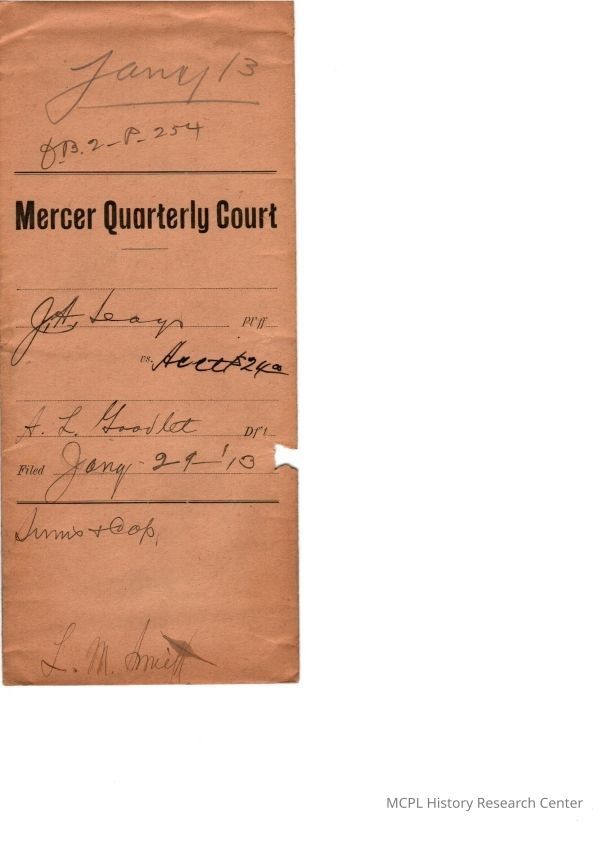 Jany 13
O.B. 2 - P. 254
Mercer Quarterly Court
J.A. Pl'ff
vs. Acct $24
A. L. Goodlet Df't
Filed Jany - 29 - '13
Sums & Cop,
L. M.
MCPL History Research Center